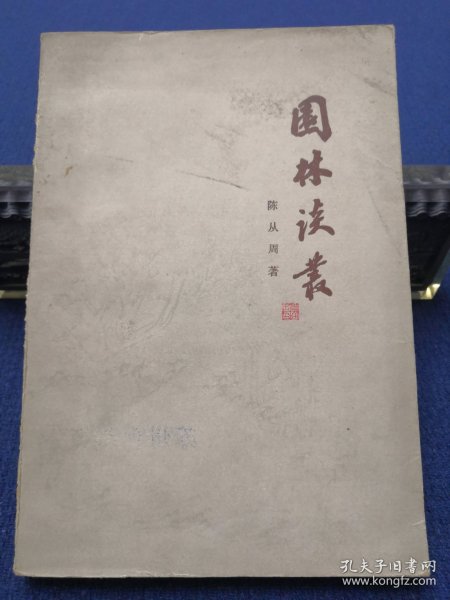 园林谈叢
陈从周著
孔夫子旧书网
www.kongfz.com